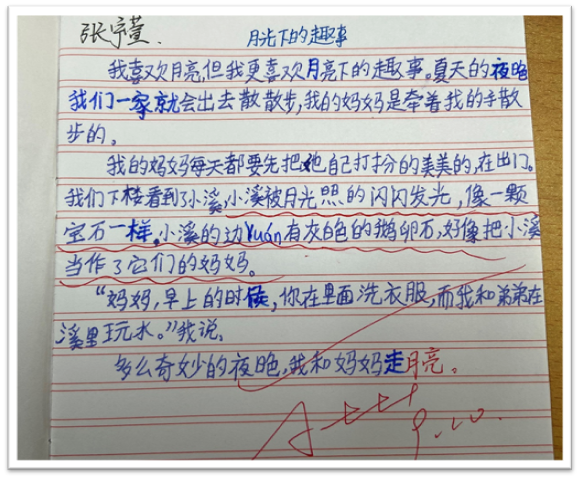 张宇萱.
月光下的趣事
我喜欢月亮,但我更喜欢月亮下的趣事。夏天的夜晚
我们一家就会出去散散步,我的妈妈是牵着我的手散
步的。
我的妈妈每天都要先把她自己打扮的美美的,在出门。
我们下楼看到了小溪,小溪被月光照的闪闪发光,像一颗
宝石一样。小溪的边yuán有灰白色的鹅卵石,好像把小溪
当作了它们的妈妈。
“妈妈,早上的时候,你在里面洗衣服,而我和弟弟在
溪里玩水。”我说。
多么奇妙的夜晚,我和妈妈走月亮。
A+++
9.20.